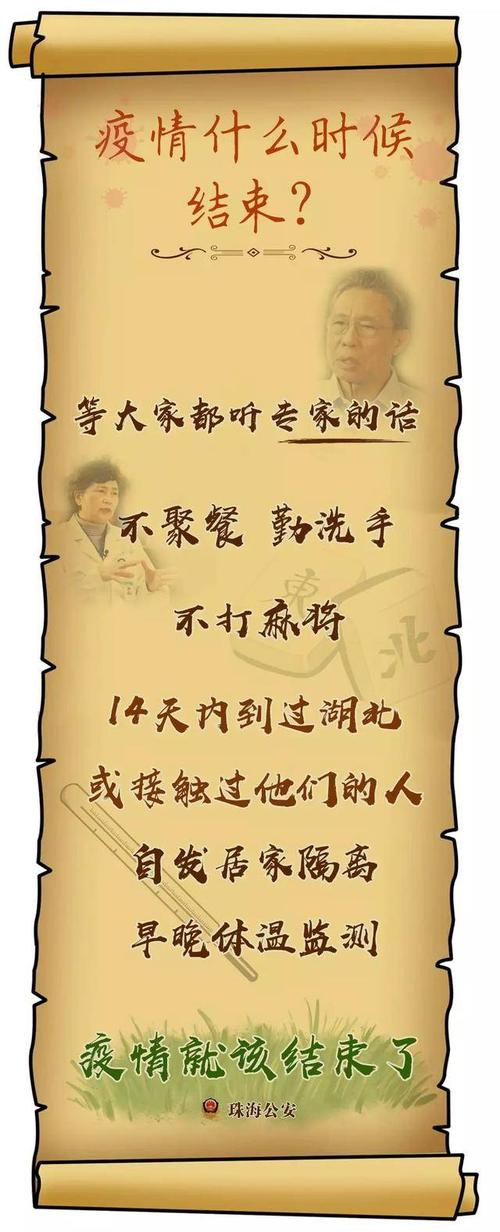 疫情什么时候
结束?
等大家都听专家的话
不聚餐 勤洗手
不打麻将
東
北
14天内到过湖北
或接触过他们的人
自发居家隔离
早晚体温监测
疫情就该结束了
珠海公安